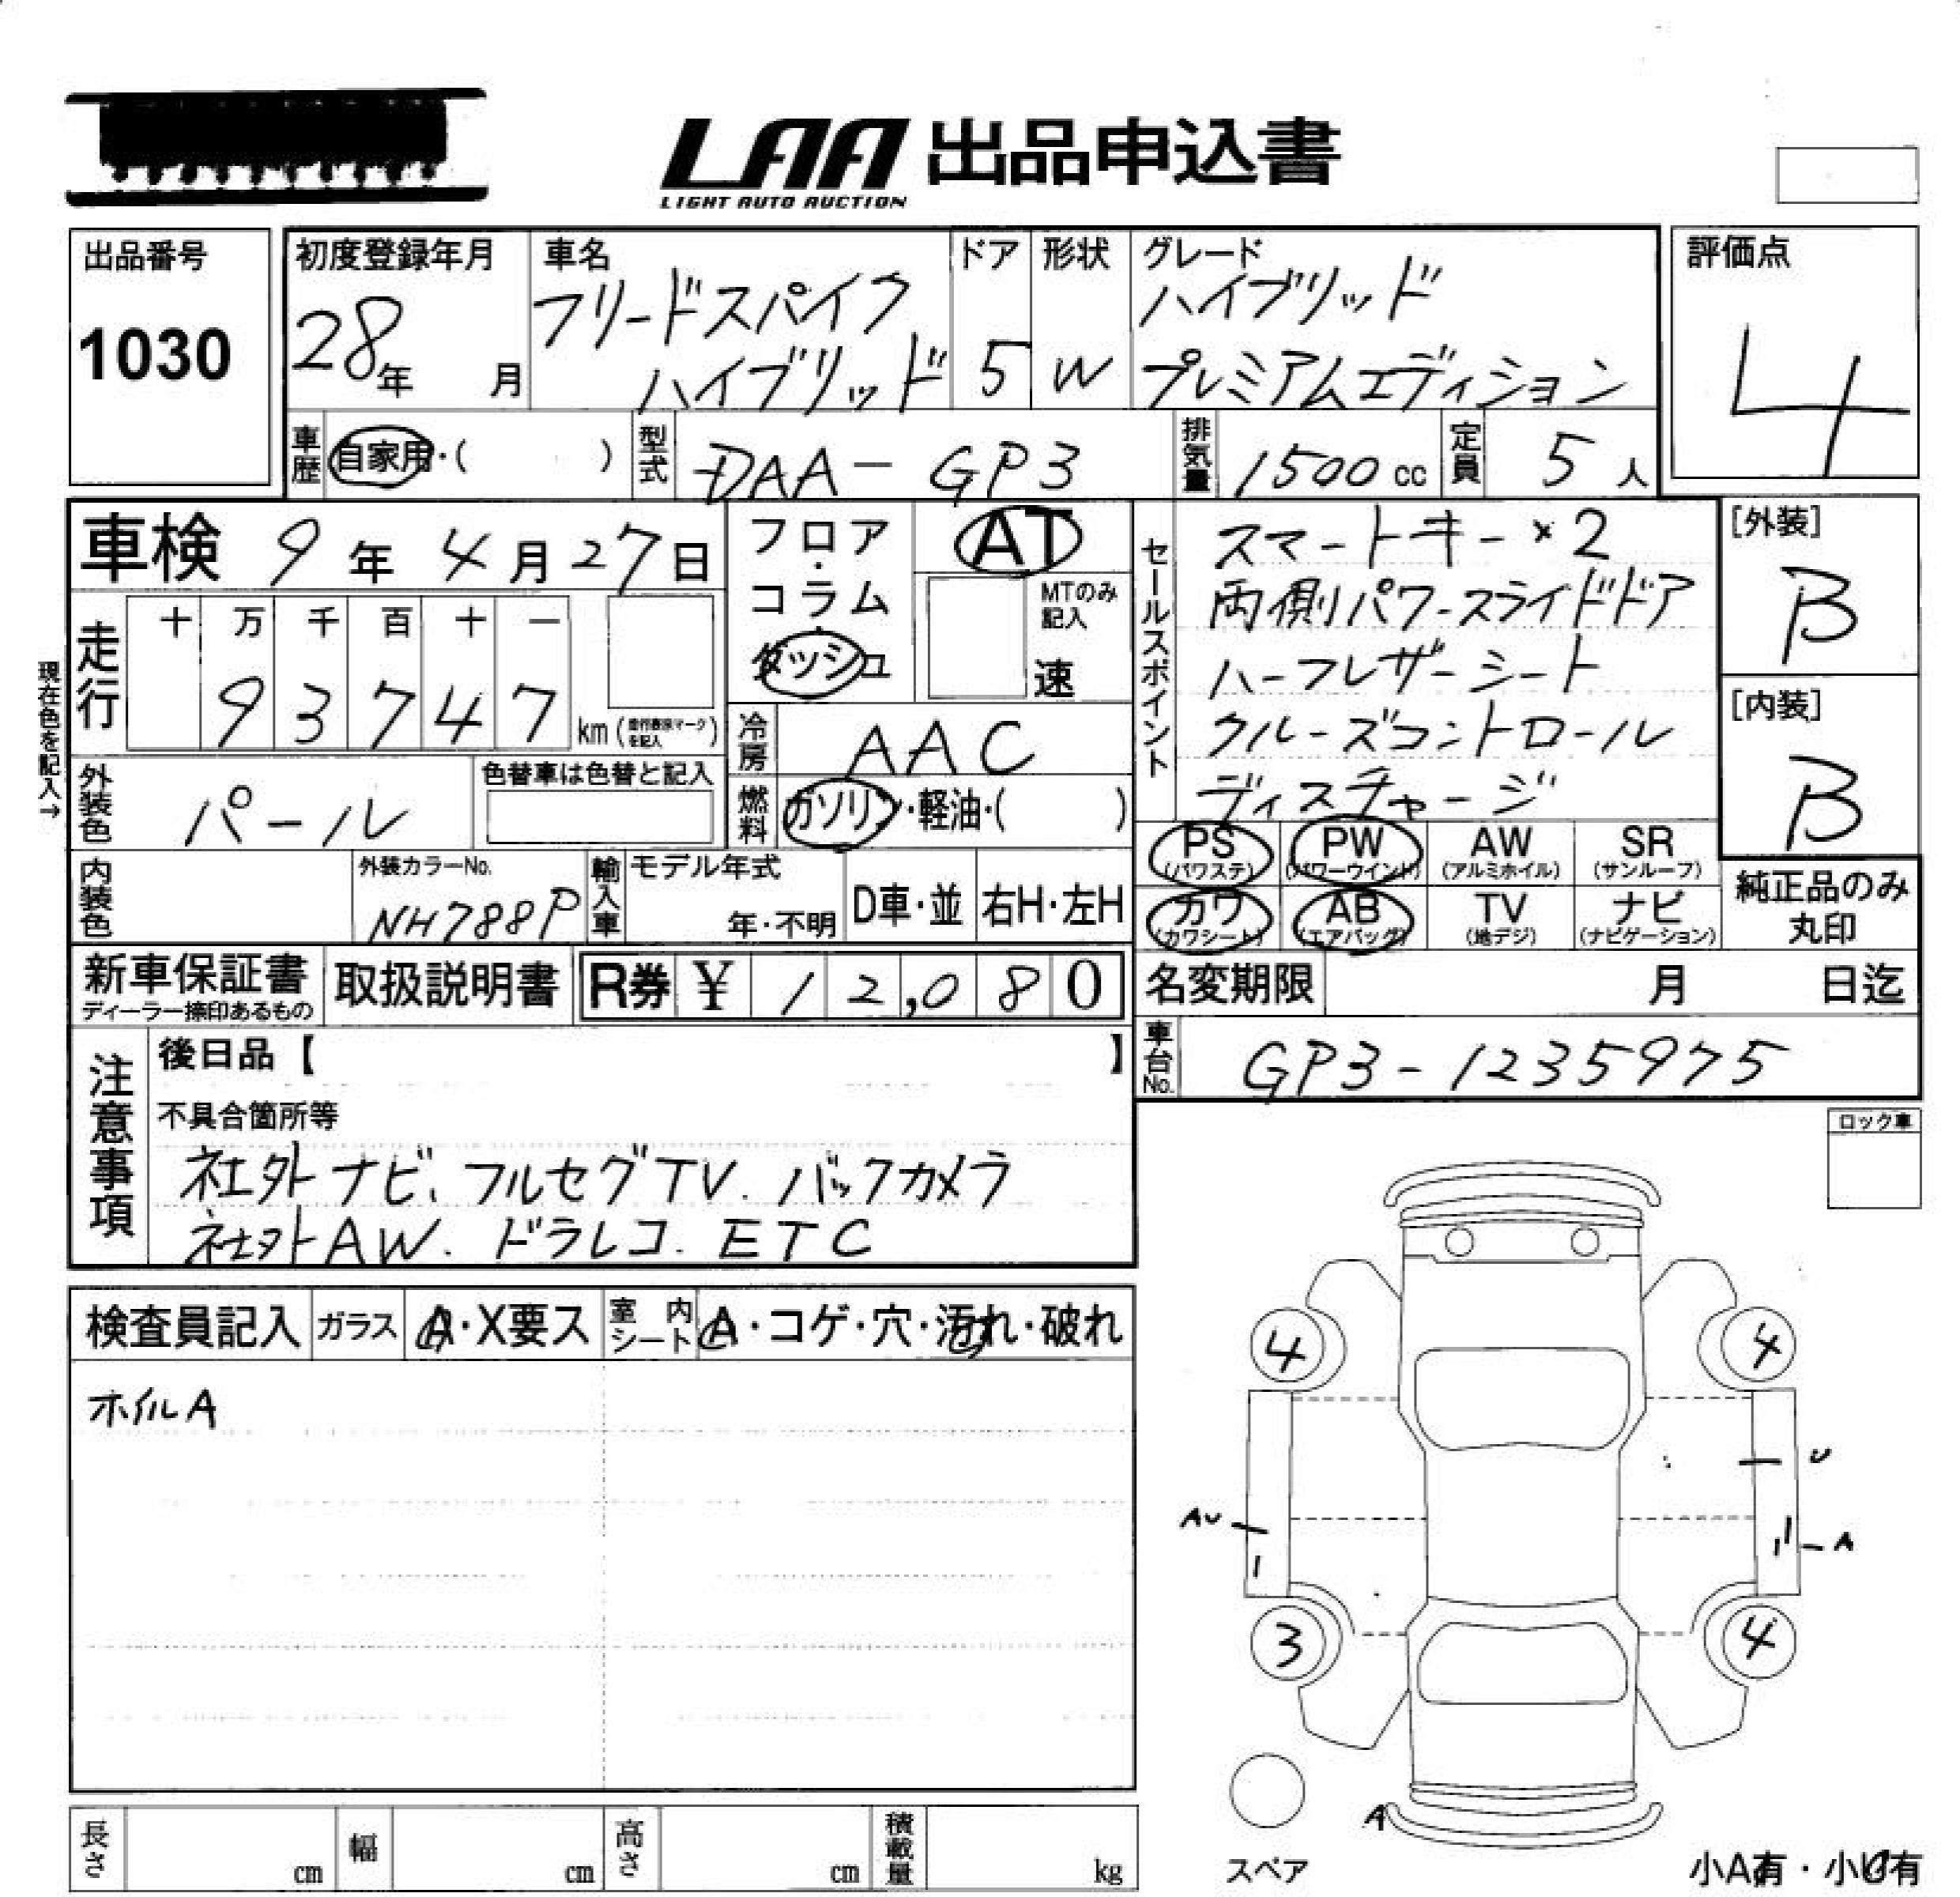 LAA 出品申込書
LIGHT AUTO AUCTION
出品番号
1030
初度登録年月
28年 月
車名
フリードスパイク
ハイブリッド
ドア
5
形状
W
グレード
ハイブリッド
プレミアムエディション
評価点
4
車歴 自家用・( )
型式 DAA-GP3
排気量 1500cc
定員 5人
車検 9年4月27日
フロア・コラム・ダッシュ
AT
MTのみ記入
速
走行
十 万 千 百 十 一
9 3 7 4 7 km
現在色を記入→
外装色 パール
色替車は色替と記入
冷房 AAC
燃料 ガソリン・軽油・( )
セールスポイント
スマートキー×2
両側パワースライドドア
ハーフレザーシート
クルーズコントロール
ディスチャージ
[外装]
B
[内装]
B
PS (パワステ) PW (パワーウインド) AW (アルミホイル) SR (サンルーフ)
カワ (カワシート) AB (エアバッグ) TV (地デジ) ナビ (ナビゲーション)
純正品のみ
丸印
内装色
外装カラーNo.
NH788P
輸入車
モデル年式
年・不明
D車・並
右H・左H
新車保証書
ディーラー捺印あるもの
取扱説明書
R券 ¥ 12,080
名変期限 月 日迄
車台No. GP3-1235975
注意事項
後日品【 】
不具合箇所等
社外ナビ、フルセグTV. バックカメラ
社外AW. ドラレコ. ETC
ロック車
検査員記入
ガラス A・X要ス
室内シート A・コゲ・穴・汚れ・破れ
ホイルA
4 4
U
AU
A
3 4
A
スペア
長さ cm
幅 cm
高さ cm
積載量 kg
小A有・小U有